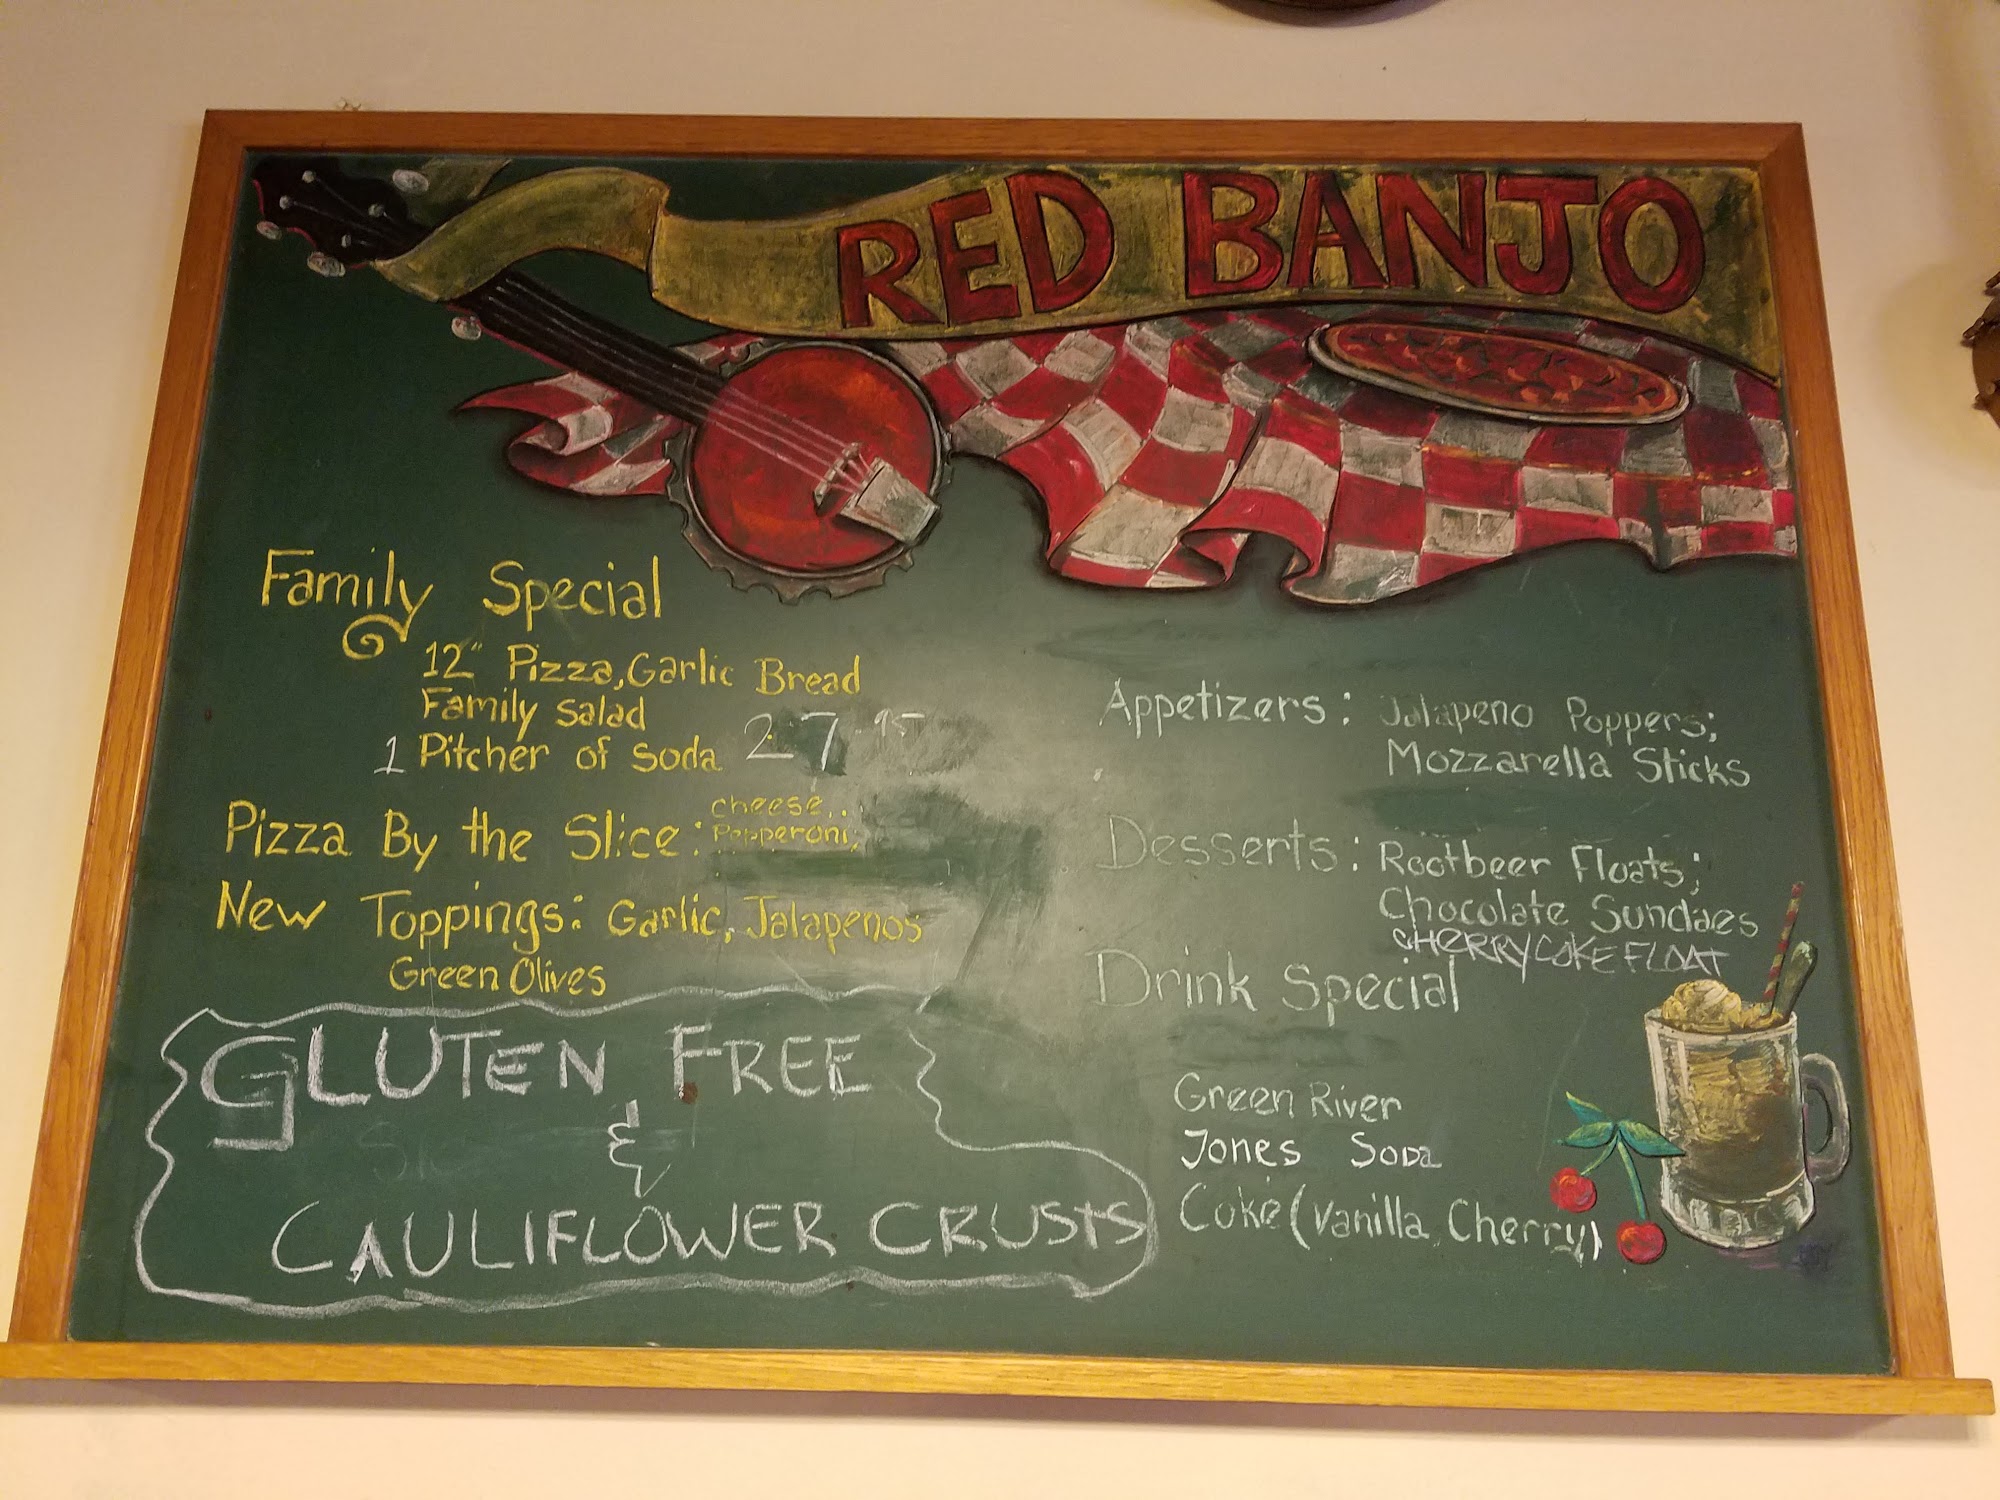 RED BANJO
Family Special
12" Pizza, Garlic Bread
Family salad
1 Pitcher of soda 27.95
Pizza By the Slice: cheese,
Pepperoni,
New Toppings: Garlic, Jalapenos
Green Olives
GLUTEN FREE
&
CAULIFLOWER CRUSTS
Appetizers: Jalapeno Poppers;
Mozzarella Sticks
Desserts: Rootbeer Floats;
Chocolate Sundaes
CHERRY COKE FLOAT
Drink Special
Green River
Jones Soda
Coke (Vanilla, Cherry)